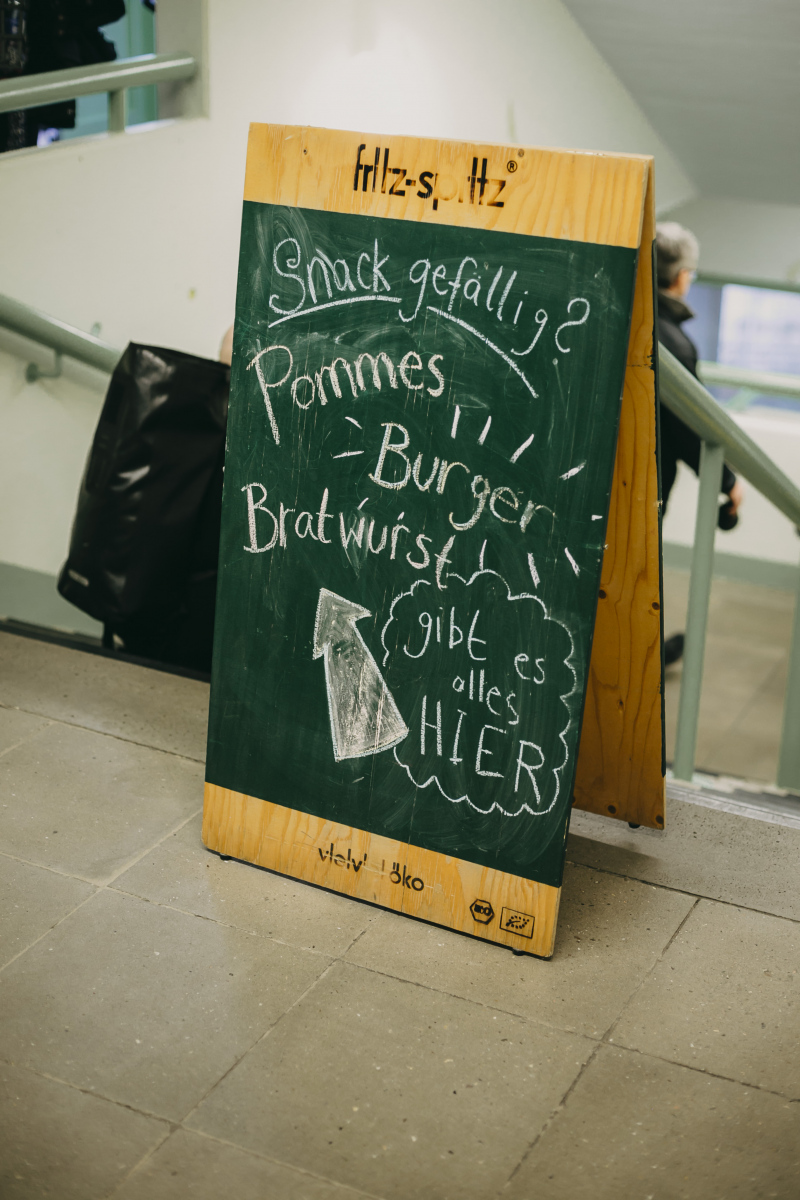 fritz-spritz®
Snack gefällig?
Pommes
Burger
Bratwurst
gibt
es
alles
HIER
vielviel öko
BIO